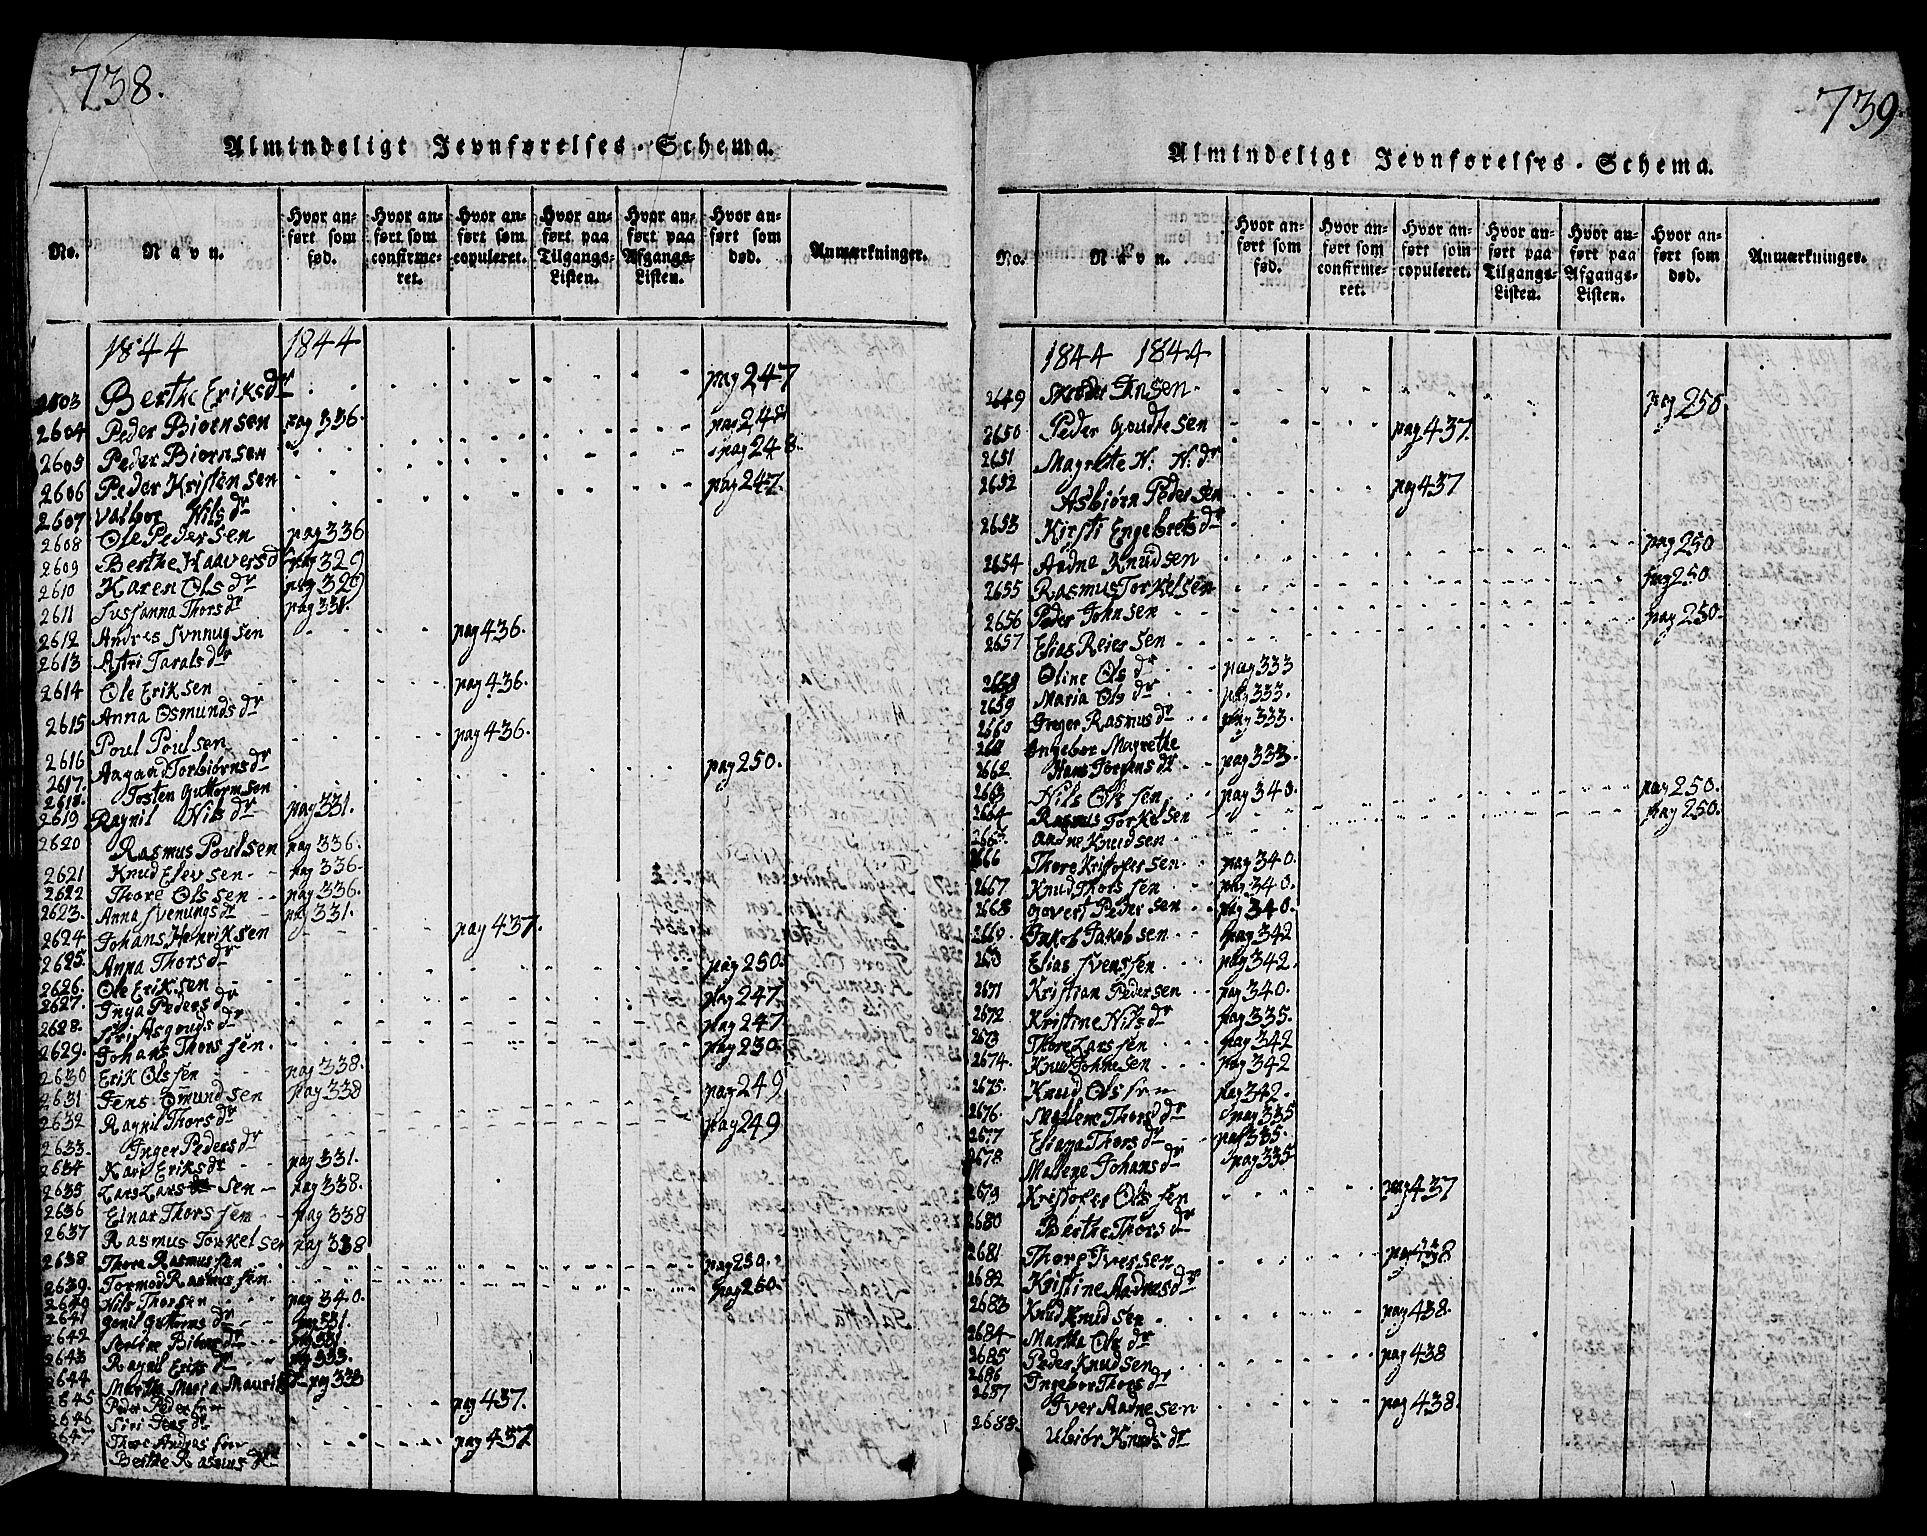 738.
Almindeligt Jevnførelses-Schema.
No.
Navn.
Hvor anført som fød.
Hvor anført som confirmeret.
Hvor anført som copuleret.
Hvor anført paa Tilgangs-Listen.
Hvor anført paa Afgangs-Listen.
Hvor anført som død.
Anmærkninger.
1844 1844
2603 Berthe Eriksdr pag 247
2604 Peder Biørnsen pag 336. pag 248
2605 Peder Biørnsen pag 248.
2606 Peder Kristensen pag 247.
2607 Valbor Nilsdr
2608 Ole Pedersen pag 336
2609 Berthe Haaversd pag 329
2610 Karen Olsdr pag 329
2611 Sussanna Thorsdr pag 331.
2612 Andres Svnnugsen pag 436.
2613 Astri Taralsdr
2614 Ole Eriksen pag 436.
Anna Osmundsdr
2615 Poul Poulsen pag 436.
2616 Aagaad Torbiørnsdr pag 250.
2617.
2618. Tosten Guttormsen
2619 Ragnil Nilsdr pag 331.
2620 Rasmus Poulsen pag 336.
2621 Knud Elevsen pag 336
2622 Thore Olssen pag 336.
2623. Anna Svenungsdr pag 331.
2624 Johans Henriksen pag 437.
2625. Anna Thorsdr pag 250.
2626. Ole Eriksen pag 247
2627. Inga Pedersdr pag 247
2628. Siri Asgoudsdr
2629. Johans Thorssen. pag 230.
2630 Erik Olssen pag 338.
2631 Jens Omundsen pag 338 pag 249
2632 Ragnil Thorsdr pag 249
2633. Inger Pedersdr
2634 Kari Eriksdr pag 331.
2635 Lars Larssen pag 338.
2636 Einar Thorssen pag 338
2637 Rasmus Torkelsen pag 338
2638 Thore Rasmussen pag 250.
2639. Tormod Rasmussen pag 250
2640 Nils Thorsen pag 340.
2641 Gonil Guttormsdr pag 331.
2642 pag 331
2643 Ragnil Eriksdr pag 333.
2644 Martha Maria Mauritsdr pag 333
2645 Peder Pedersen pag 437.
2646 Siri Jensdr
2647 Thore Andrassen pag 437
Berthe Rasmusdr
739.
Almindeligt Jevnførelses-Schema.
No.
Navn.
Hvor anført som fød.
Hvor anført som confirmeret.
Hvor anført som copuleret.
Hvor anført paa Tilgangs-Listen.
Hvor anført paa Afgangs-Listen.
Hvor anført som død.
Anmærkninger.
1844 1844
2649 Jnsen. pag 250
2650 Peder Goudtesen pag 437
2651 Magrette N. N.dr
2652 Asbiørn Pedersen pag 437
2653 Kirsti Engebretsdr
2654 Aadne Knudsen pag 250
2655 Rasmus Torkelsen pag 250
2656 Peder Johnsen pag 250
2657 Elias Reiersen
2658 Oline Olsdr pag 333
2659 Maria Olsdr pag 333.
2660 Greger Rasmusdr pag 333.
2661 Ingebor Magrethe
2662 Hans Jørgensdr pag 333.
2663 Nils Olssen pag 340.
2664 Rasmus Torkelsen pag 250.
2665. Aadne Knudsen pag 250.
2666 Thore Kristofersen pag 340.
2667 Knud Thorssen pag 340.
2668 Govert Pedersen pag 340.
2669. Jakob Jakobsen pag 342
2670 Elias Svenssen pag 342.
2671 Kristian Pedersen pag 340.
2672 Kristine Nilsdr pag 335.
2673 Thore Larssen pag 342
2674. Knud Johnesen pag 342
2675. Knud Olssen pag 342.
2676. Mallene Thorsdr pag 335
2677 Eliana Thorsdr pag 335.
2678 Mallene Johansdr pag 335
2679 Kristofer Olssen pag 437
2680 Berthe Thorsdr
2681 Thore Iversen pag 438
2682 Kristine Aadnesdr
2683 Knud Knudsen pag 438.
2684 Martha Olsdr
2685 Peder Knudsen pag 438
2686 Ingebor Thorsdr
2687 Iver Aadnesen pag 438.
2688. Ulbiør Knudsdr